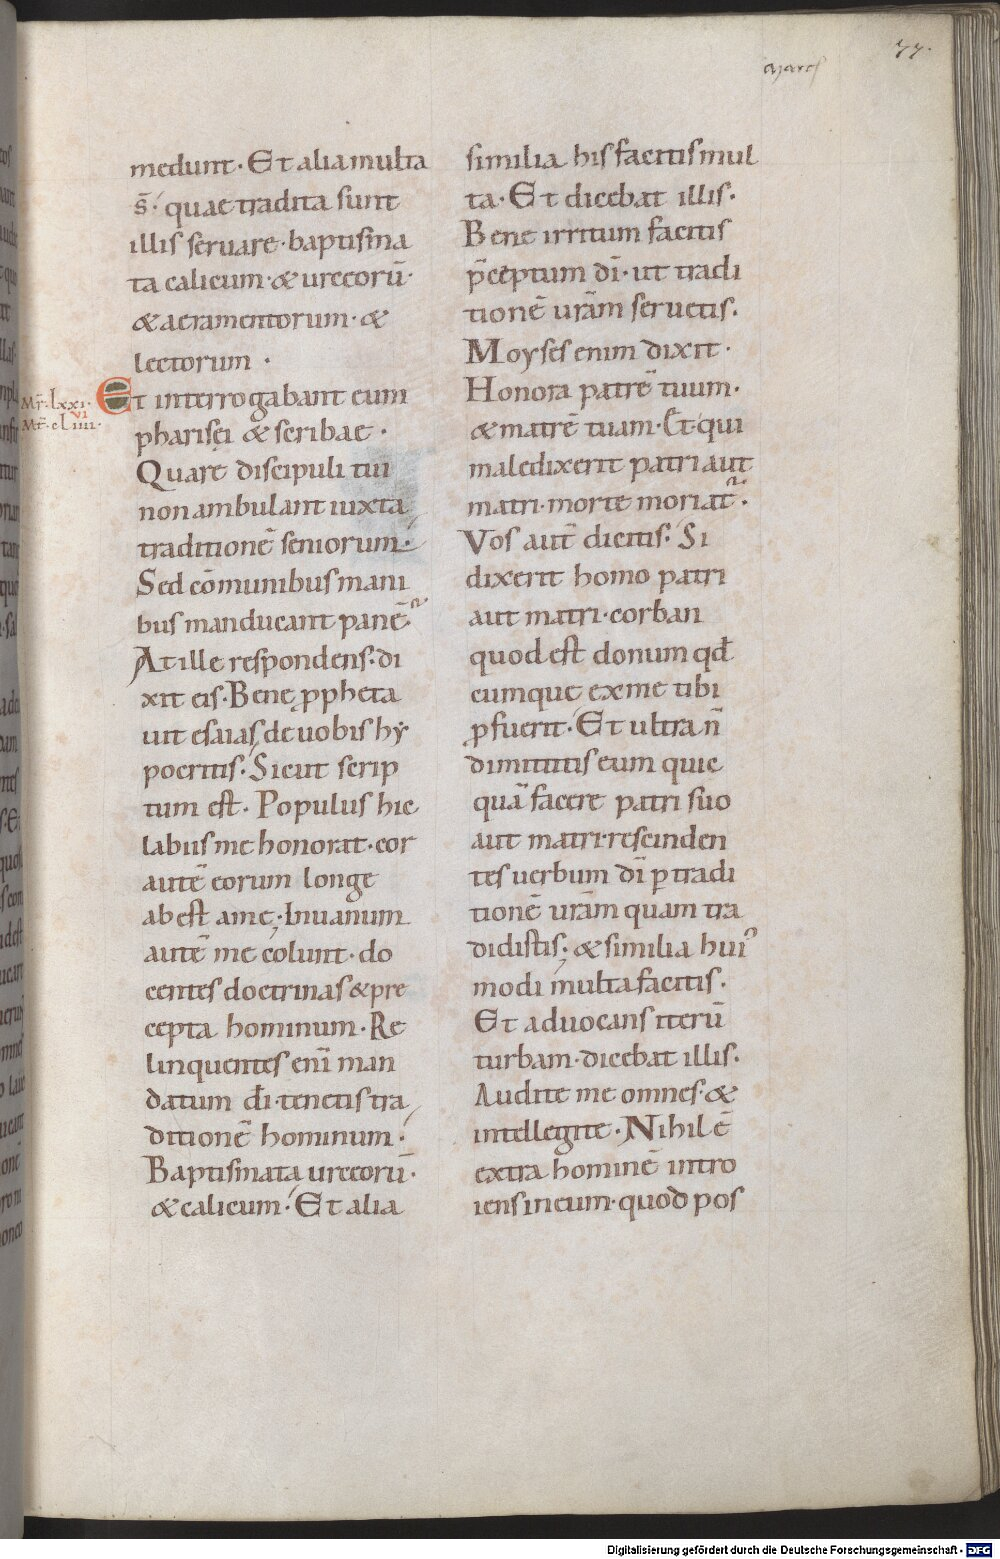 77.
medunt· Et alia multa
s̄· quae tradita sunt
illis seruare· baptisma
ta calicum· & urceorū·
& aeramentorum· &
lectorum ·
Mr̄· lxxi·
Mt̄· cliiii·
vi
Et interrogabant eum
pharisęi & scribae ·
Quare discipuli tui
non ambulant iuxta
traditionē seniorum·
Sed cōmunibus mani
bus manducant panē
At ille respondens· di
xit eis· Bene ꝓpheta
uit esaias de uobis hẏ
pocritis· Sicut scrip
tum est· Populus hic
labiis me honorat· cor
autē eorum longe
abest a me· Inuanum
autē me colunt· do
centes doctrinas & pre
cepta hominum· Re
linquentes enī man
datum dī· tenetis tra
ditionē hominum·
Baptismata urceorū·
& calicum· Et alia
similia his facitis mul
ta· Et dicebat illis·
Bene irritum facitis
p̄ceptum dī· ut tradi
tionē urām seruetis·
Moyses enim dixit·
Honora patrē tuum·
& matrē tuam· Et qui
maledixerit patri aut
matri· morte moriat᷑·
Vos aut̄ dicitis· Si
dixerit homo patri
aut matri· corban
quod est donum qd̄
cumque ex me tibi
ꝓfuerit· Et ultra n̄
dimittitis eum quic
quā facere patri suo
aut matri· rescinden
tes uerbum dī ꝑ tradi
tionē urām quam tra
didistis· & similia hui᾿
modi multa facitis·
Et aduocans iterū
turbam· dicebat illis·
Audite me omnes· &
intellegite· Nihil ē
extra hominē intro
iens in eum· quod pos
Digitalisierung gefördert durch die Deutsche Forschungsgemeinschaft - DFG